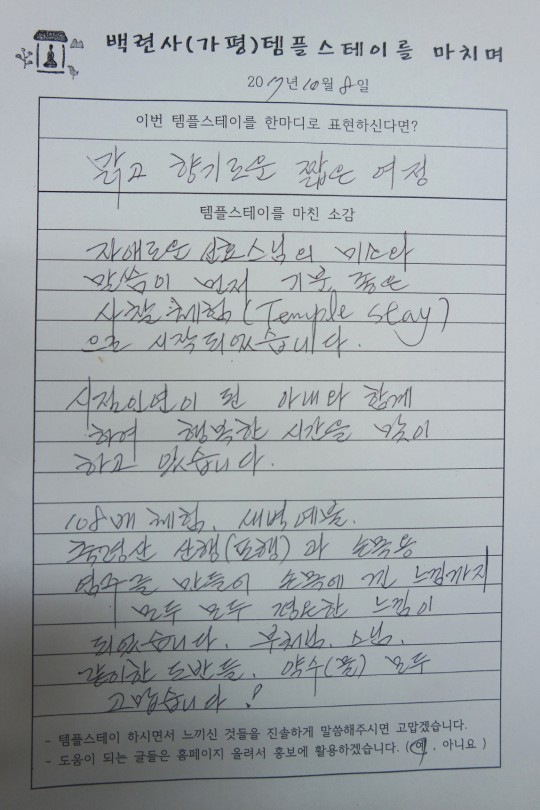 백련사(가평)템플스테이를 마치며
2017년 10월 8일
이번 템플스테이를 한마디로 표현하신다면?
맑고 향기로운 짧은 여정
템플스테이를 마친 소감
자애로운 스님의 미소와
말씀이 먼저 기분 좋은
사찰체험(Temple stay)
으로 시작되었습니다.
시절인연이 된 아내와 함께
하여 행복한 시간을 맞이
하고 있습니다.
108배 체험, 새벽예불,
축령산 산행(포행)과 손목용
염주를 만들어 손목에 낀 느낌까지
모두 모두 필요한 느낌이
되었습니다. 부처님, 스님,
같이한 도반들, 약수(물) 모두
고맙습니다!
- 템플스테이 하시면서 느끼신 것들을 진솔하게 말씀해주시면 고맙겠습니다.
- 도움이 되는 글들은 홈페이지 올려서 홍보에 활용하겠습니다. (예, 아니요)